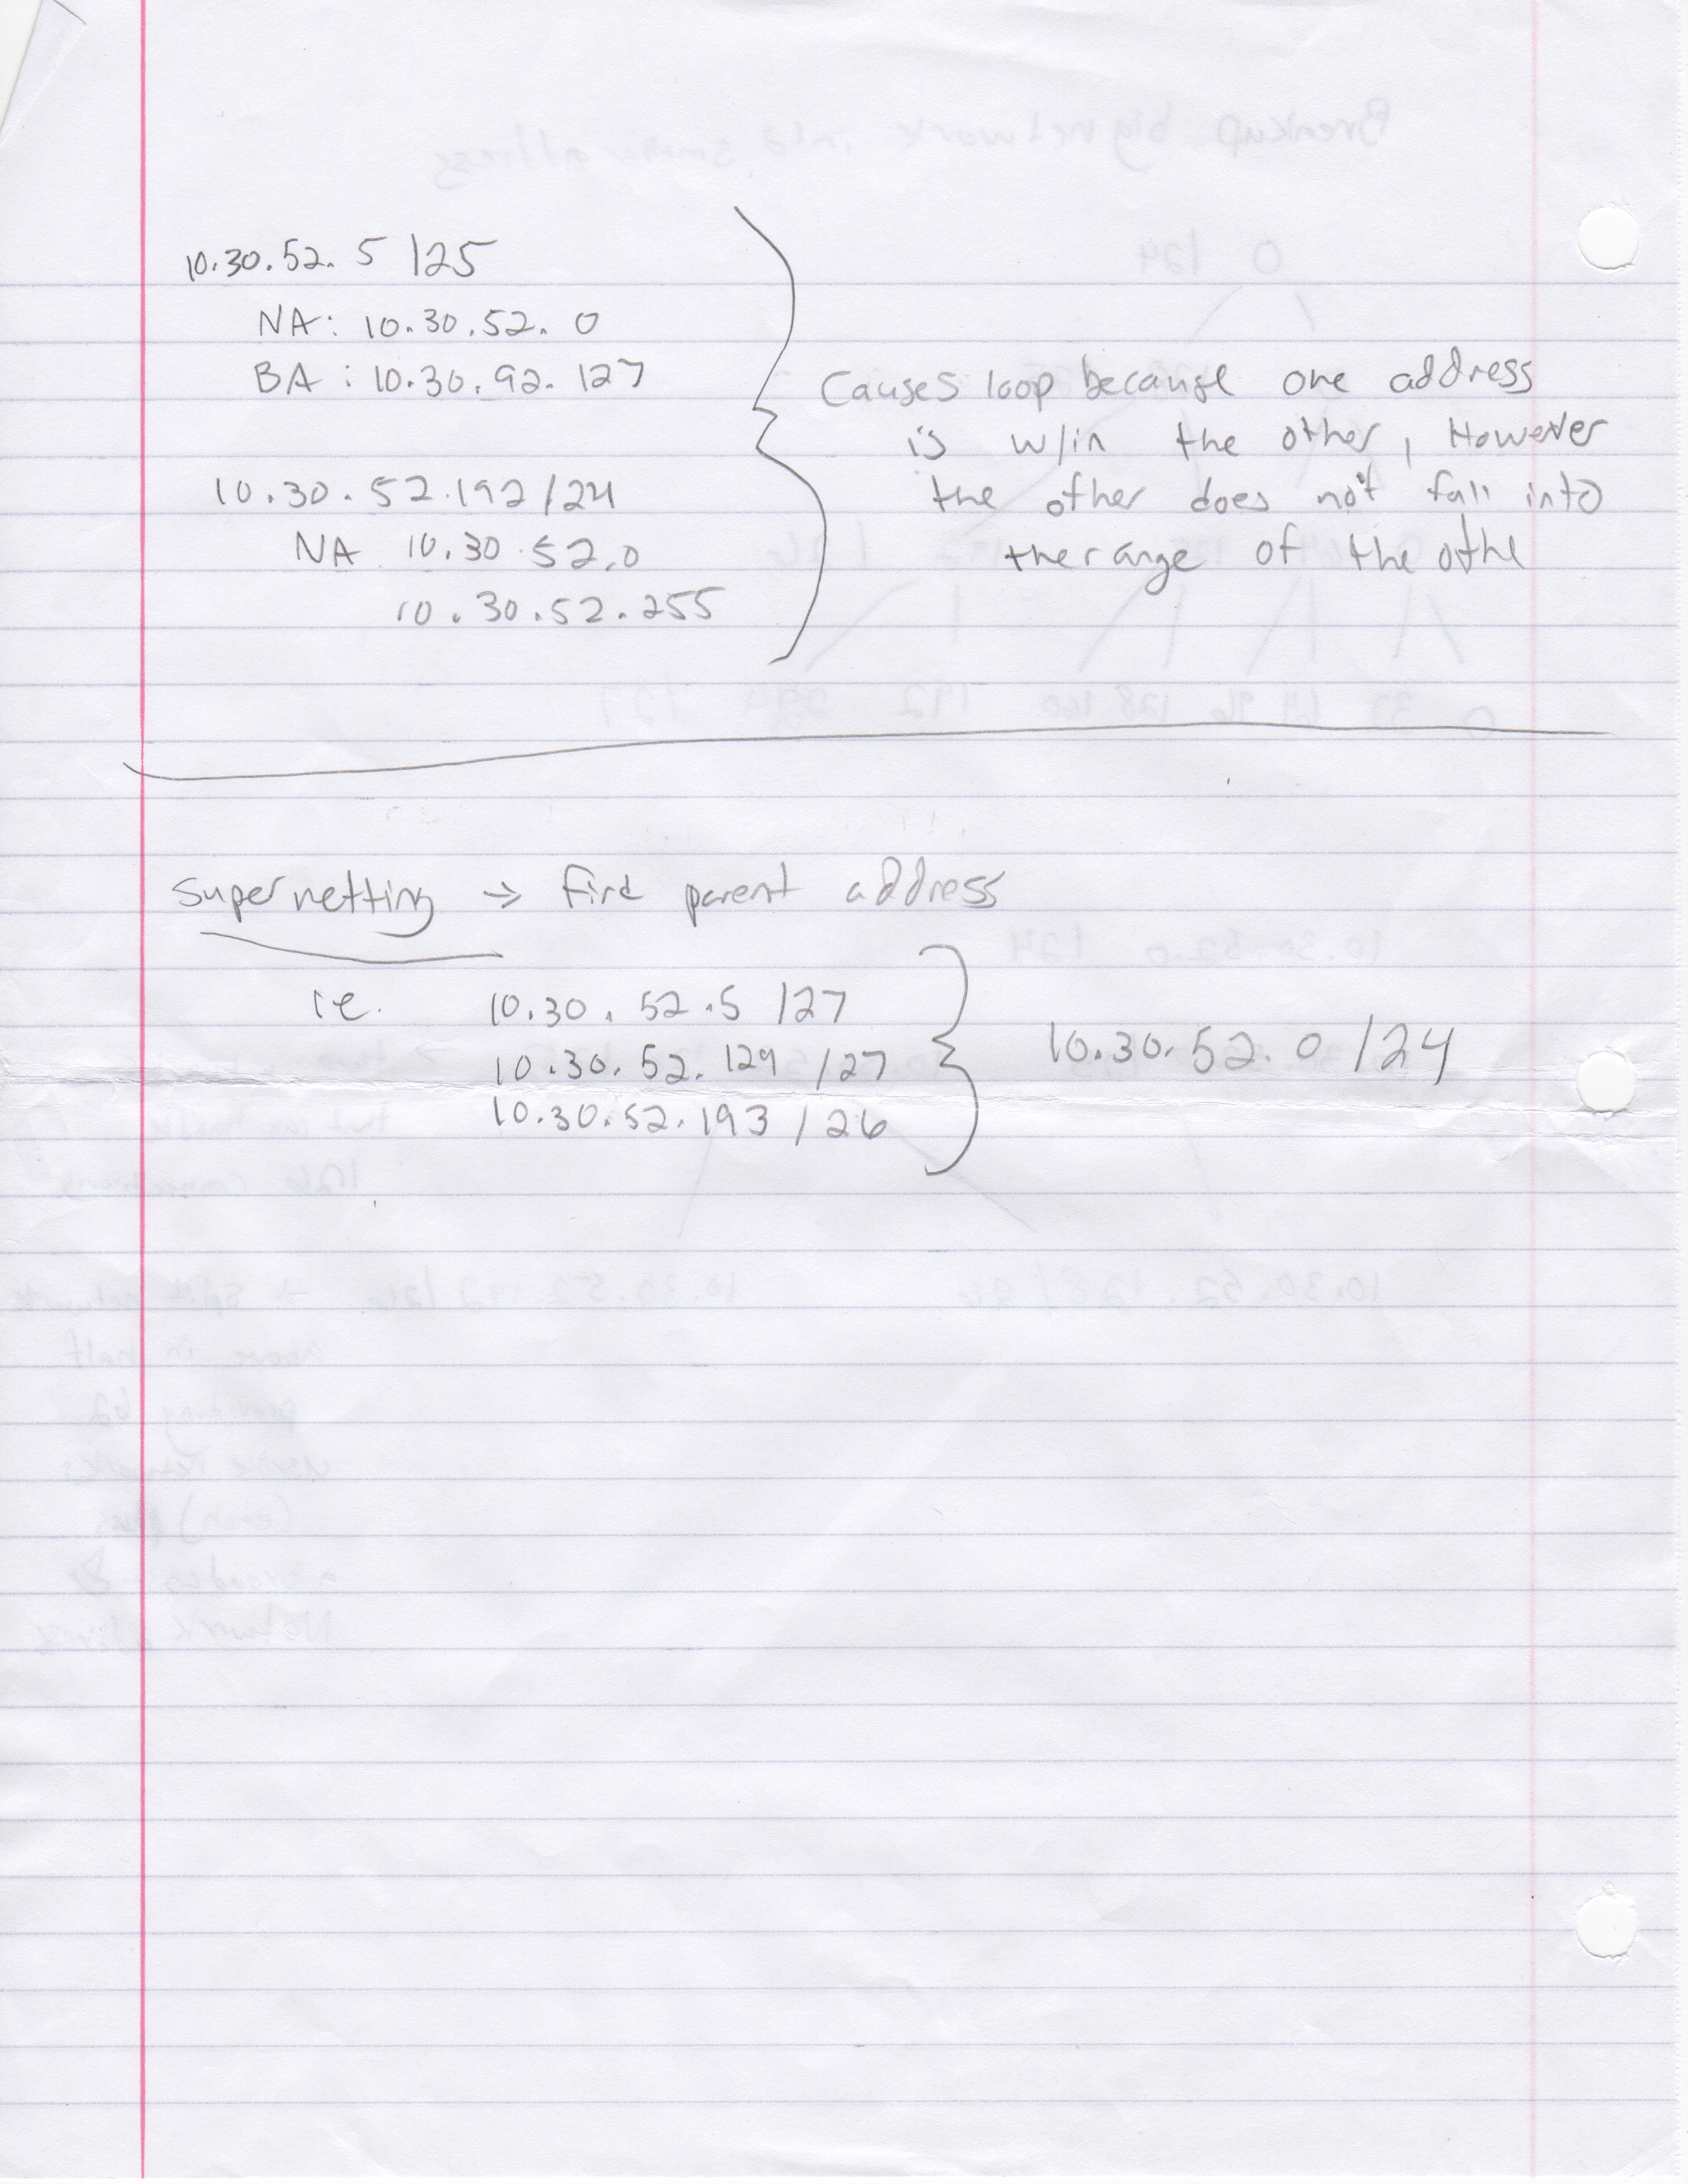 10.30.52.5 /25
NA: 10.30.52.0
BA: 10.30.92.127
10.30.52.192/24
NA 10.30.52.0
10.30.52.255
Causes loop because one address
is w/in the other, However
the other does not fall into
the range of the othe
Supernetting → Find parent address
ie. 10.30.52.5 /27
10.30.52.129 /27
10.30.52.193 /26
10.30.52.0 /24